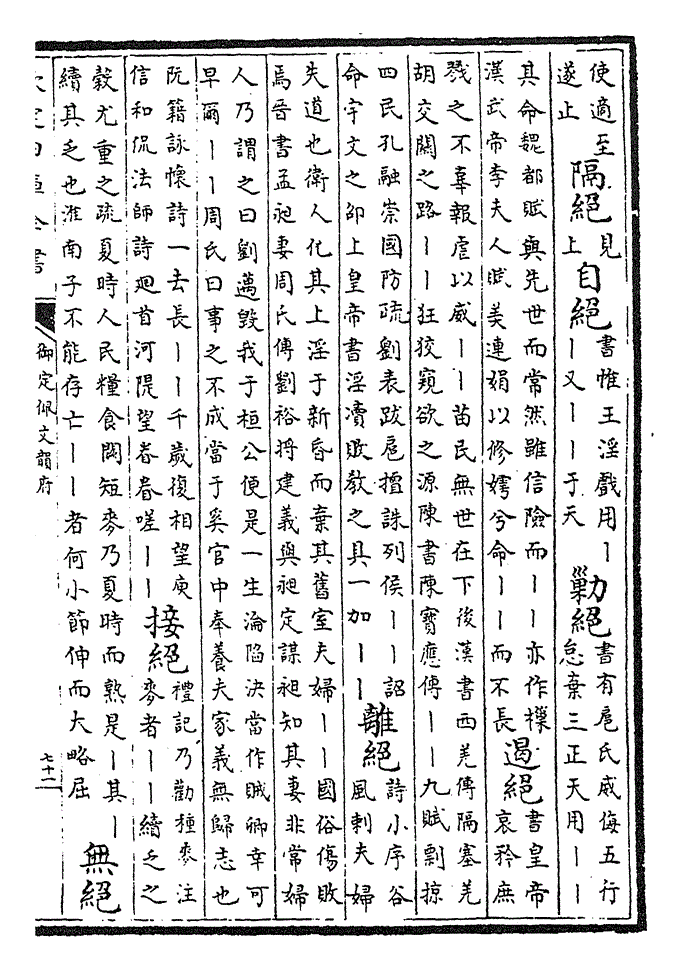 使適至
遂止
隔絕
見
上
自絕
書惟王淫戲用丨
丨又丨丨于天
勦絕
書有扈氏威侮五行
怠棄三正天用丨丨
其命魏都賦與先世而常然雖信險而丨丨亦作樔
漢武帝李夫人賦美連娟以修嫮兮命丨丨而不長
遏絕
書皇帝
哀矜庶
戮之不辜報虐以威丨丨苗民無世在下後漢書西羌傳隔塞羌
胡交關之路丨丨狂狡窺欲之源陳書陳寶應傳丨丨九賦剽掠
四民孔融崇國防疏劉表跋扈擅誅列侯丨丨詔
命宇文之邵上皇帝書淫瀆敗教之具一加丨丨
離絕
詩小序谷
風刺夫婦
失道也衛人化其上淫于新昏而棄其舊室夫婦丨丨國俗傷敗
焉晉書孟昶妻周氏傳劉裕將建義與昶定謀昶知其妻非常婦
人乃謂之曰劉邁毀我于桓公便是一生淪陷決當作賊卿幸可
早爾丨丨周氏曰事之不成當于奚官中奉養夫家義無歸志也
阮籍詠懷詩一去長丨丨千歲復相望庾
信和侃法師詩廻首河隄望眷眷嗟丨丨
接絕
禮記乃勸種麥注
麥者丨丨續乏之
穀尤重之疏夏時人民糧食闕短麥乃夏時而熟是丨其丨
續其乏也淮南子不能存亡丨丨者何小節伸而大略屈
無絕
欽定四庫全書
御定佩文韻府
七十一